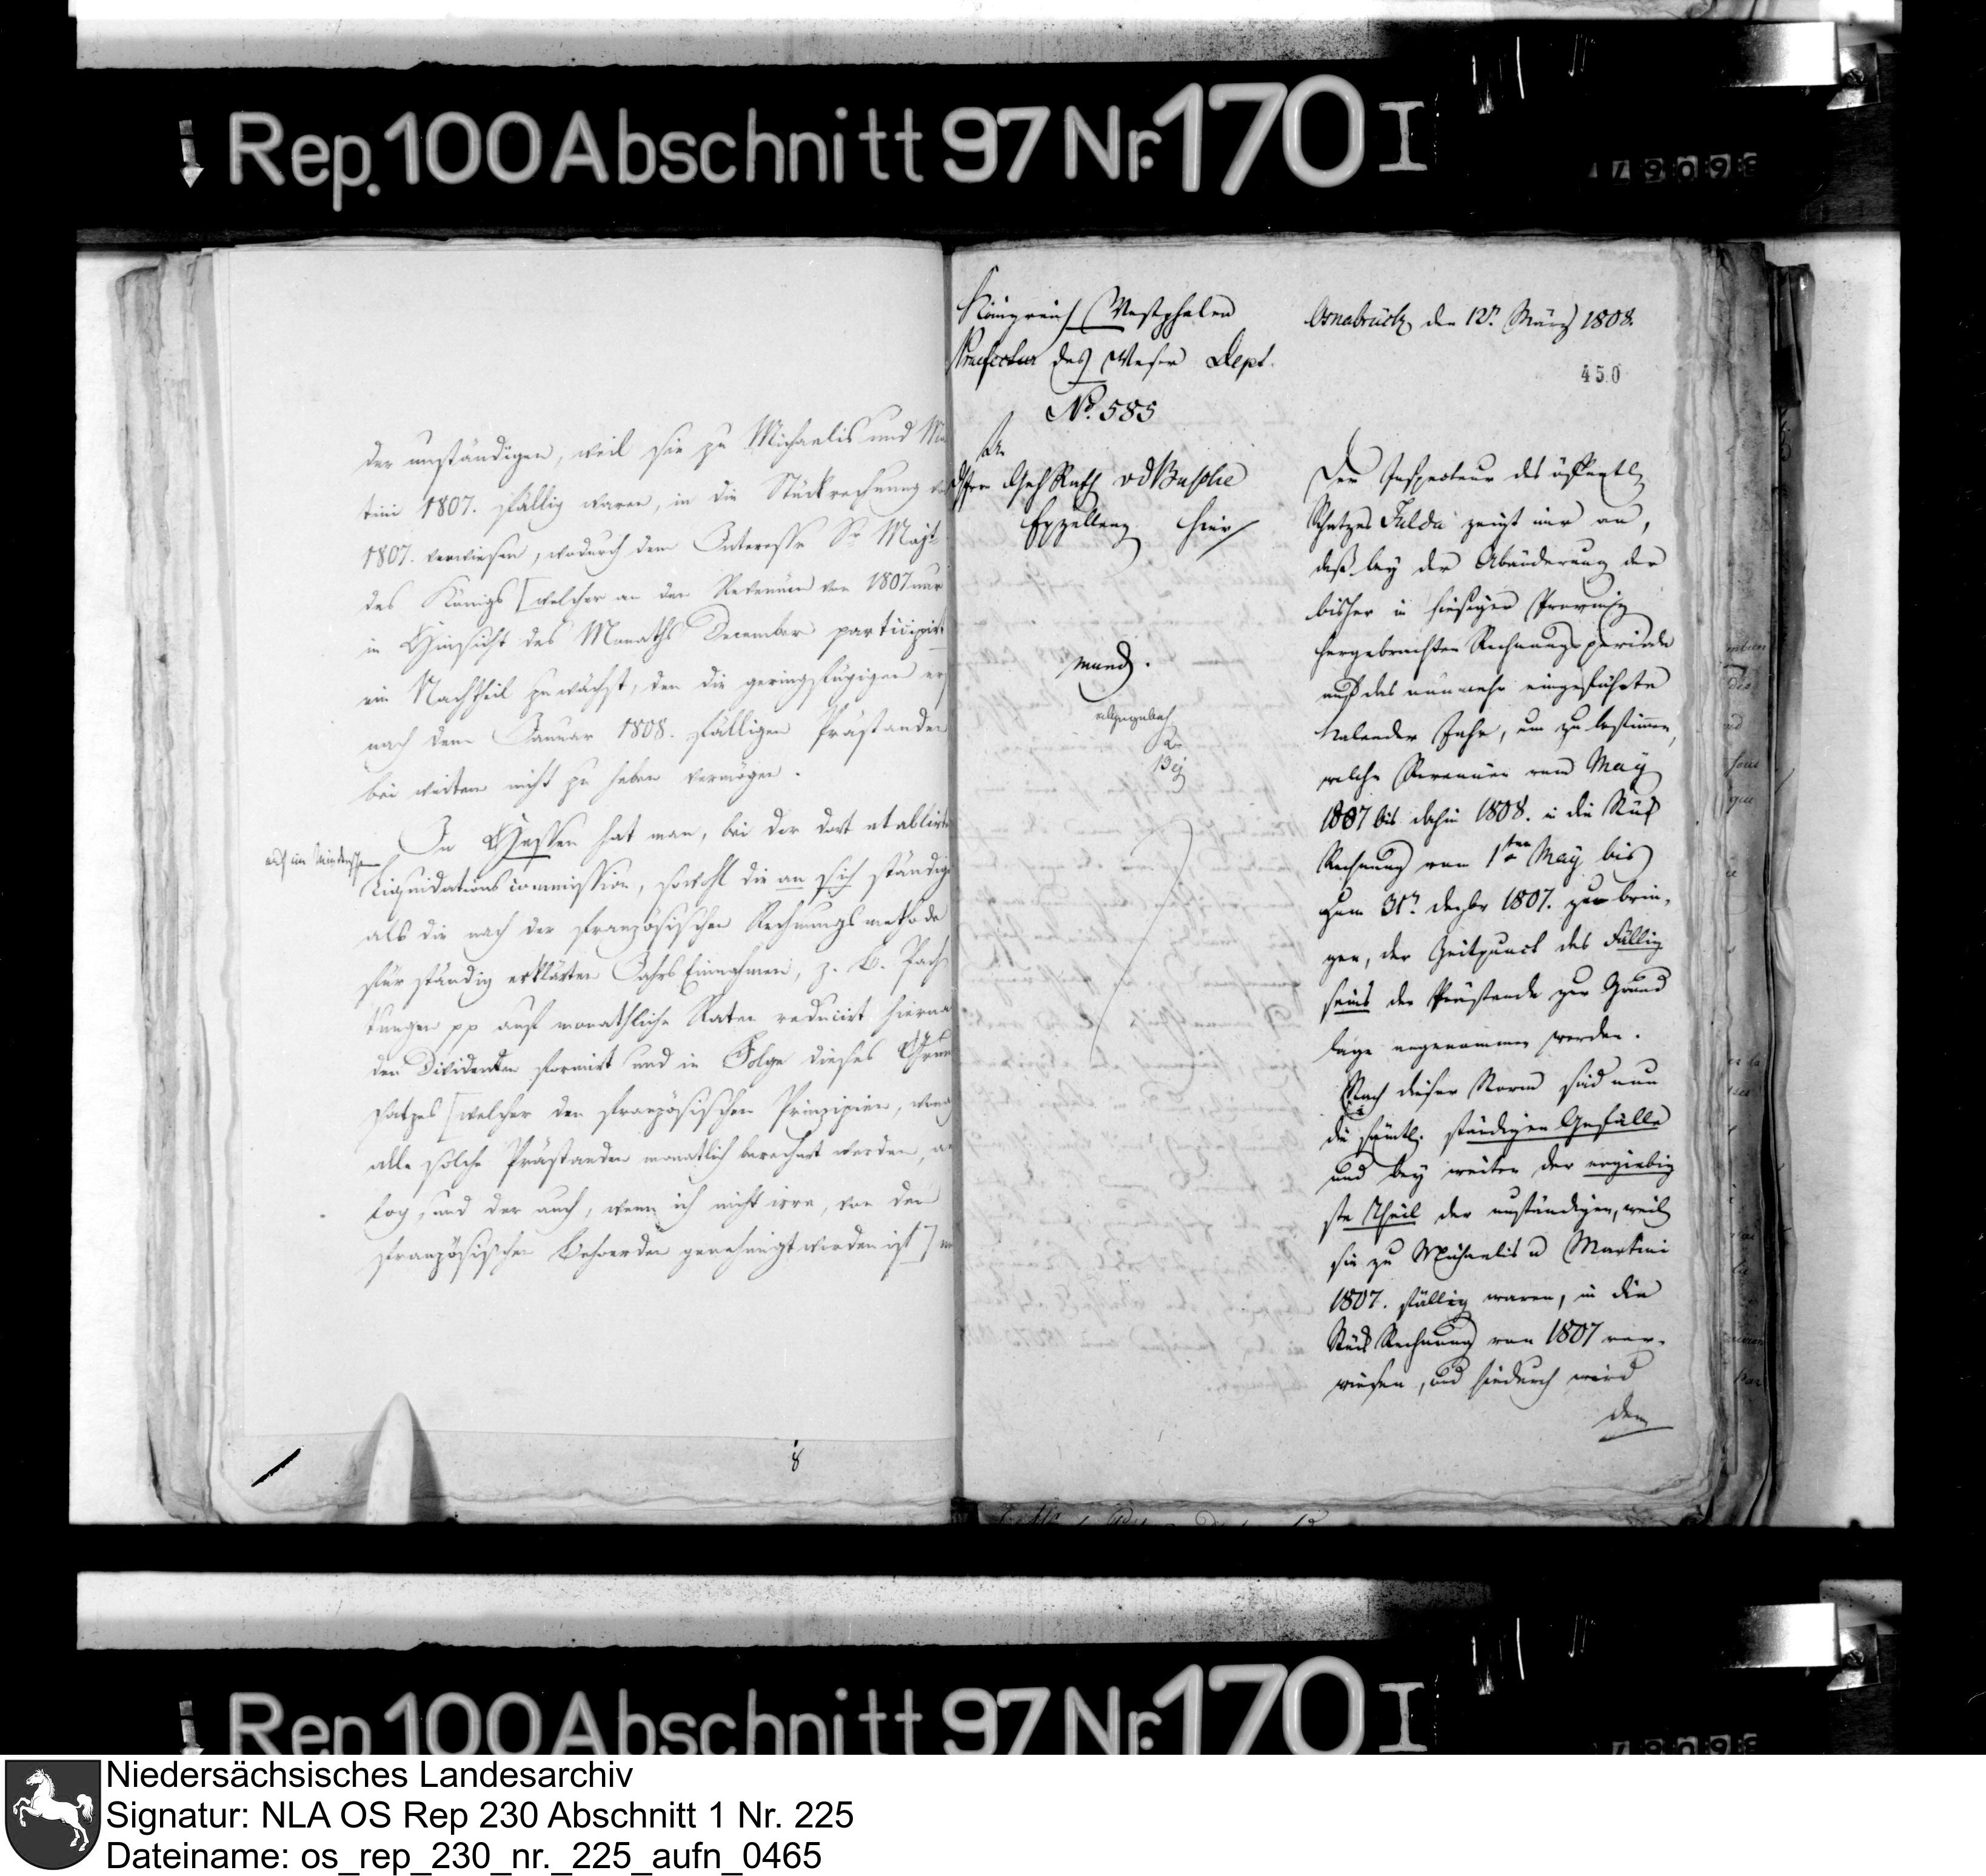 Rep. 100 Abschnitt 97 Nr. 170 I
der unständigen, weil sie zu Michaelis und Mar
tini 1807. fällig waren, in die Stückrechnung von
1807. verwiesen, wodurch dem Interesse Sr. Majt.
des Königs [welcher an den Revenüen von 1807 nur
in Hinsicht des Monaths December participirt
ein Nachtheil zuwächst, den die geringfügigen erst
nach dem Januar 1808. fälligen Prästanden
bei weiten nicht zu heben vermögen.
In Hessen hat man, bei der dort etablirten
auch im Mindenschen
Liquidationscommission, sowohl die an sich ständigen
als die nach der französischen Rechnungsmethode
für ständig erklärten Jahrs Einnahmen, z. B. Pach
tungen pp auf monathliche Raten reducirt hierna
den Dividenden formirt und in Folge dieses Grund
satzes [welcher den französischen Prinzipien, wonach
alle solche Prästanden monatlich berechnet werden, ana
log, und der auch, wenn ich nicht irre, von den
französischen Behoerden genehmigt worden ist]
8
Königreich Westphalen
Praefectur des Weser Dept.
No. 585
An
Herrn Geh Rath v d Busche
Exzellenz hier
mund.
Osnabrück den 12n. März 1808.
450
Der Inspecteur des öffentl.
Schatzes Fulda zeigt mir an,
daß bey der Abänderung der
bisher in hiesiger Provinz
hergebrachten Rechnungsperiode
auf das nunmehr eingeführte
Kalender Jahr, um zu bestimmen,
welche Revenüen vom May
1807 bis dahin 1808. in die Stück
Rechnung vom 1ten May bis
zum 31n. Dezbr 1807. zu brin-
gen, der Zeitpunct des Fällig
seins der Prästande zur Grund
lage angenommen worden.
Nach dieser Norm sind nun
die sämtl. ständigen Gefälle
und bey weiten der ergiebig
ste Theil der unständigen, weil
sie zu Michaelis u Martini
1807. fällig waren, in die
Stück Rechnung von 1807 ver-
wiesen, und hiedurch wird
dem
Rep. 100 Abschnitt 97 Nr. 170 I
Niedersächsisches Landesarchiv
Signatur: NLA OS Rep 230 Abschnitt 1 Nr. 225
Dateiname: os_rep_230_nr._225_aufn_0465